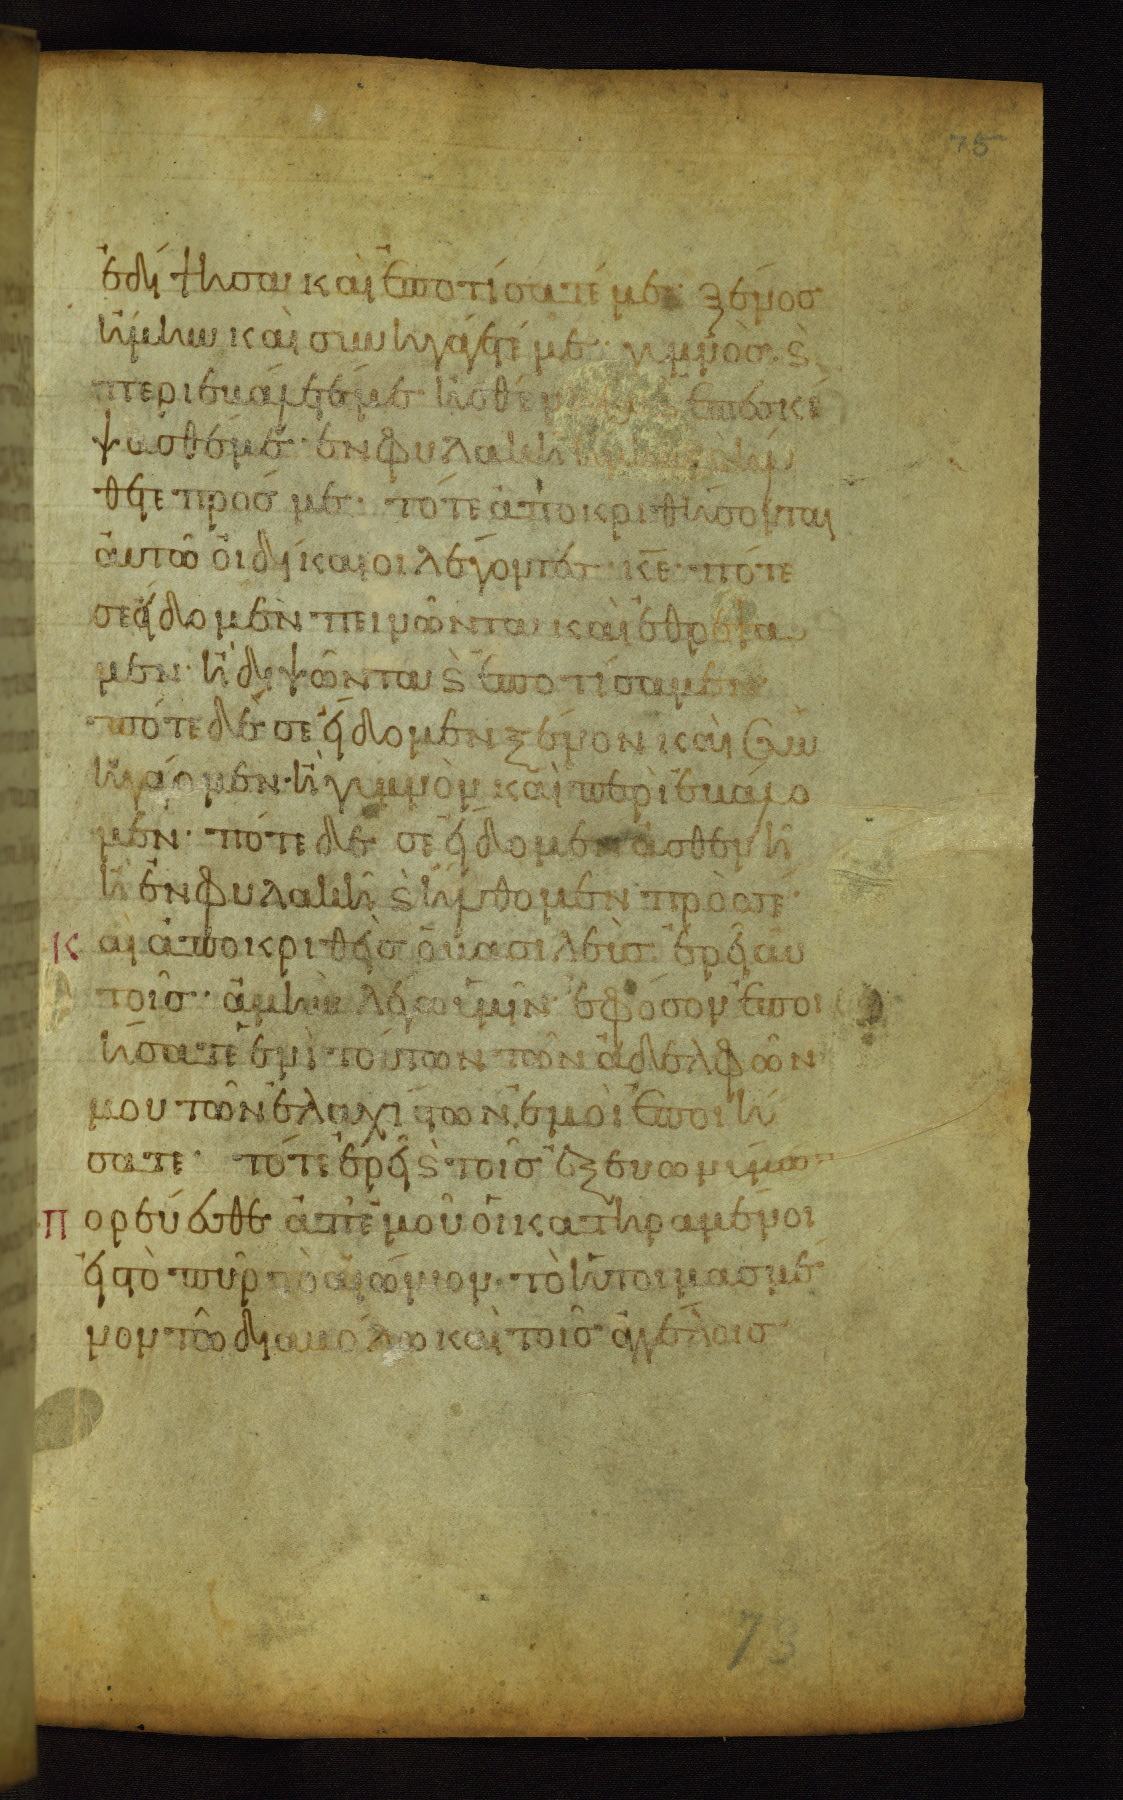 75
ἐδίψησα καὶ ἐποτίσατέ με· ξένος
ἤμην καὶ συνηγάγετέ με· γυμνὸς ϗ
περιεβάλετέ με· ἠσθέν ἐπεσκέ
ψασθέ με· ἐν φυλακῆ
θετε πρός με· τότε ἀποκριθήσονται
ἀυτῶ ὁι δίκαιοι λέγοντες· κε̅ πότε
σε ἴδομεν πεινῶντα καὶ ἐθρέψα
μεν· ἢ διψῶντα ϗ ἐποτίσαμεν·
πότε δέ σε ἴδομεν ξένον καὶ συν
ηγάγομεν· ἢ γυμνὸν καὶ περιεβάλο
μεν· πότε δέ σε ἴδομεν ἀσθενῆ
ἢ ἐν φυλακῆ ϗ ἤλθομεν πρὸς σέ·
Καὶ ἀποκριθεὶς ὁ βασιλεὺς ἐρεῖ ἀυ
τοῖς· ἀμὴν λέγω ὑμῖν ἐφόσον ἐποι
ήσατε ἑνὶ τούτων τῶν ἀδελφῶν
μου τῶν ἐλαχίστων ἐμοὶ ἐποιή
σατε· τότε ἐρεῖ ϗ τοῖς ἐξ ευωνύμων
Πορεύεσθε ἀπ' ἐμοῦ ὁι κατηραμένοι
εἰς τὸ πῦρ τὸ αἰώνιον· τὸ ἡτοιμασμέ
νον τῶ διαβόλω καὶ τοῖς ἀγγέλοις
73